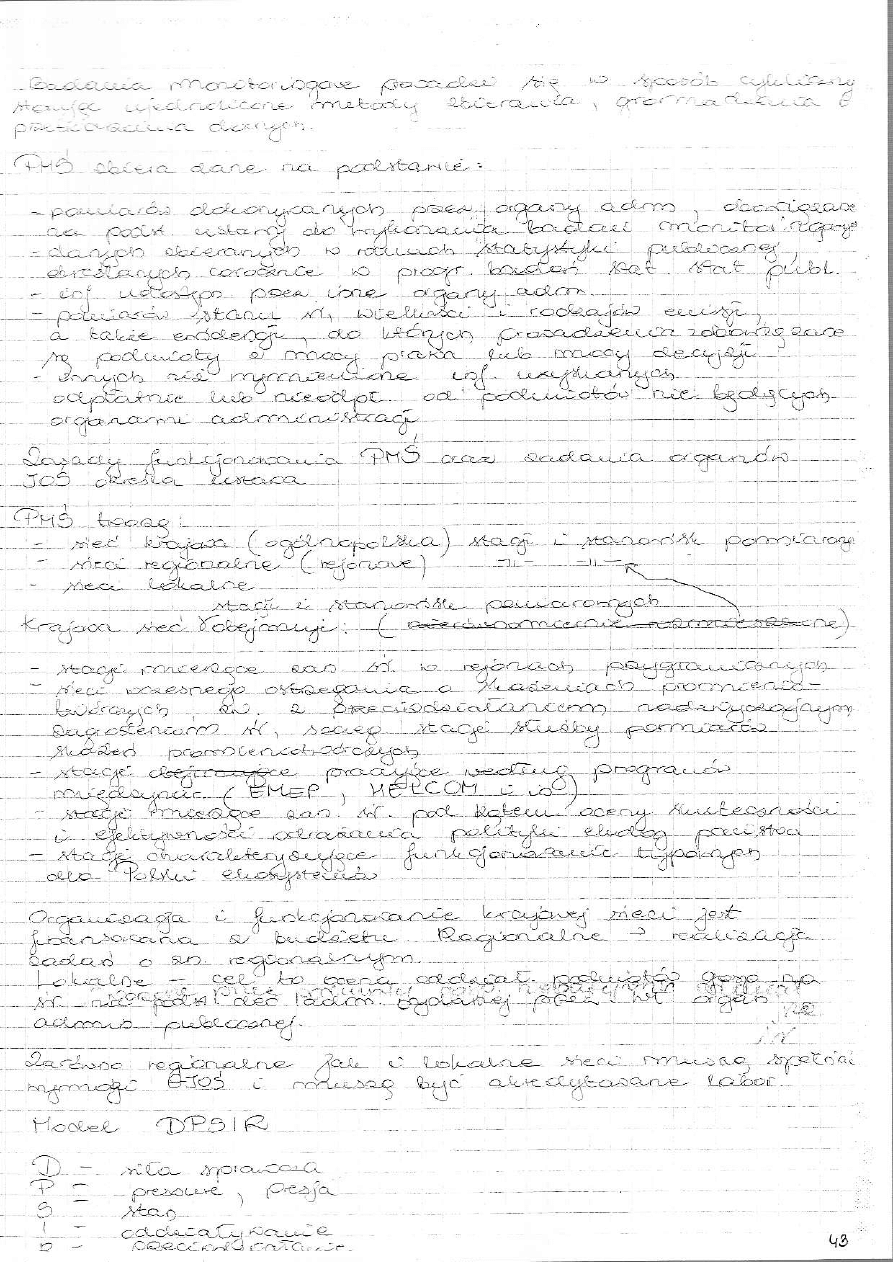 Badania monitoringowe prowadzi się w sposób cykliczny
stosując ujednolicone metody zbierania, gromadzenia i
przetwarzania danych.
PMŚ zbiera dane na podstawie:
- pomiarów dokonywanych przez organy adm, obowiązane
na podst ustawy do wykonywania badań monitoringowych
- danych zbieranych w ramach statystyki publicznej,
określanych corocznie w progr. badań stat. stat publ.
- inf udostęp przez inne organy adm
- pomiarów stanu śr, wielkości i rodzajów emisji,
a także ewidencji, do których prowadzenia zobowiązane
są podmioty z mocy prawa lub mocy decyzji
- innych niż wymienione inf uzyskanych
odpłatnie lub nieodpł. od podmiotów nie będących
organami administracji
Zasady funkcjonowania PMŚ oraz zadania organów
IOŚ określa ustawa
PMŚ tworzą:
- sieć krajowa (ogólnopolska) stacji i stanowisk pomiarowych
- sieci regionalne (rejonowe) -11- -11-
- sieci lokalne
stacji i stanowisk pomiarowych
Krajowa sieć obejmuje: ( )
- stacje mierzące zan śr. w rejonach przygranicznych
- sieci wczesnego ostrzegania o skażeniach promienio-
twórczych, zw. z przeciwdziałaniem nadzwyczajnym
zagrożeniom śr, stacje służby pomiarów
skażeń promieniotwórczych
- stacje pracujące według programów
międzynar (EMEP, HELCOM i in)
- stacje mierzące zan. śr. pod kątem oceny skuteczności
i efektywności polityki ekolog państwa
- stacje charakteryzujące funkcjonowanie typowych
dla Polski ekosystemów
Organizacja i funkcjonowanie krajowej sieci jest
finansowana z budżetu. Regionalne → realizacja
zadań o zn regionalnym.
Lokalne - cel to ocena oddział. podmiotów gosp na
śr. adm. wydanej przez wł organ
admin publicznej.
Zarówno regionalne jak i lokalne sieci muszą spełniać
wymogi IOŚ i muszą być akredytowane labor.
Model DPSIR
D - siła sprawcza
P - pressure, presja
S - stan
I - oddziaływanie
R - przeciwdziałanie
43